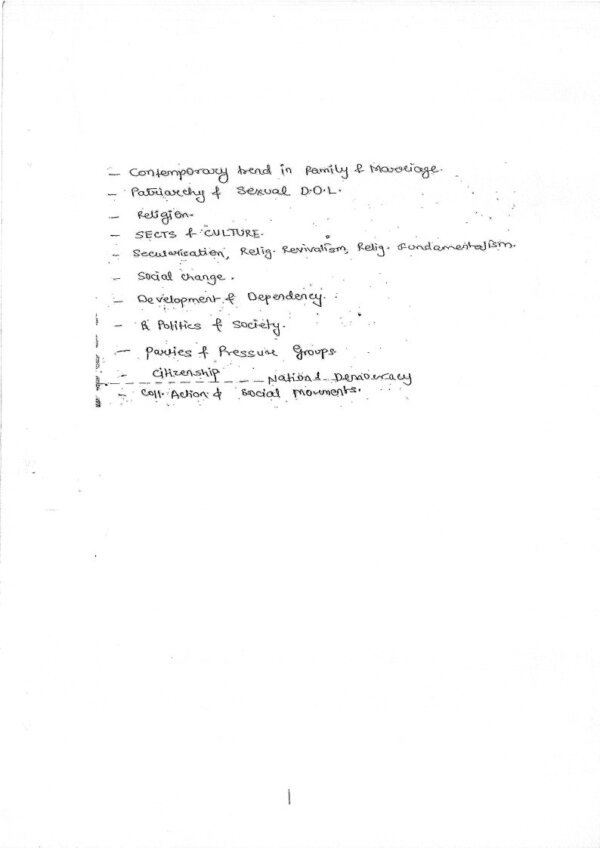 - Contemporary trend in Family & Marriage.
- Patriarchy & Sexual D.O.L.
- Religion.
- SECTS & CULTURE.
- Secularisation, Relig. Revivalism, Relig. Fundamentalism.
- Social change.
- Development & Dependency.
- Politics & Society.
- Parties & Pressure Groups
- Citizenship Nation & Democracy
- Coll. Action & Social Movments.
1